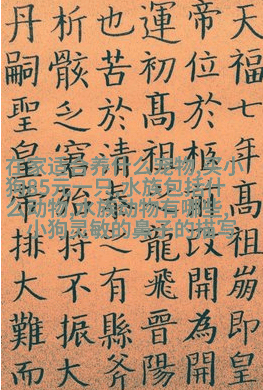 天福七年高祖崩即皇
帝位於柩前改開為開
運初高祖龍飛晉陽
也苦於清泰之有縣斧
析骸乏窮殆持不振大
丹嗣聖皇帝排大難而
在家适合养什么宠物,奖小
狗85元一只,水族包括什
么动物,水族动物有哪些,
小狗灵敏的鼻子的描写